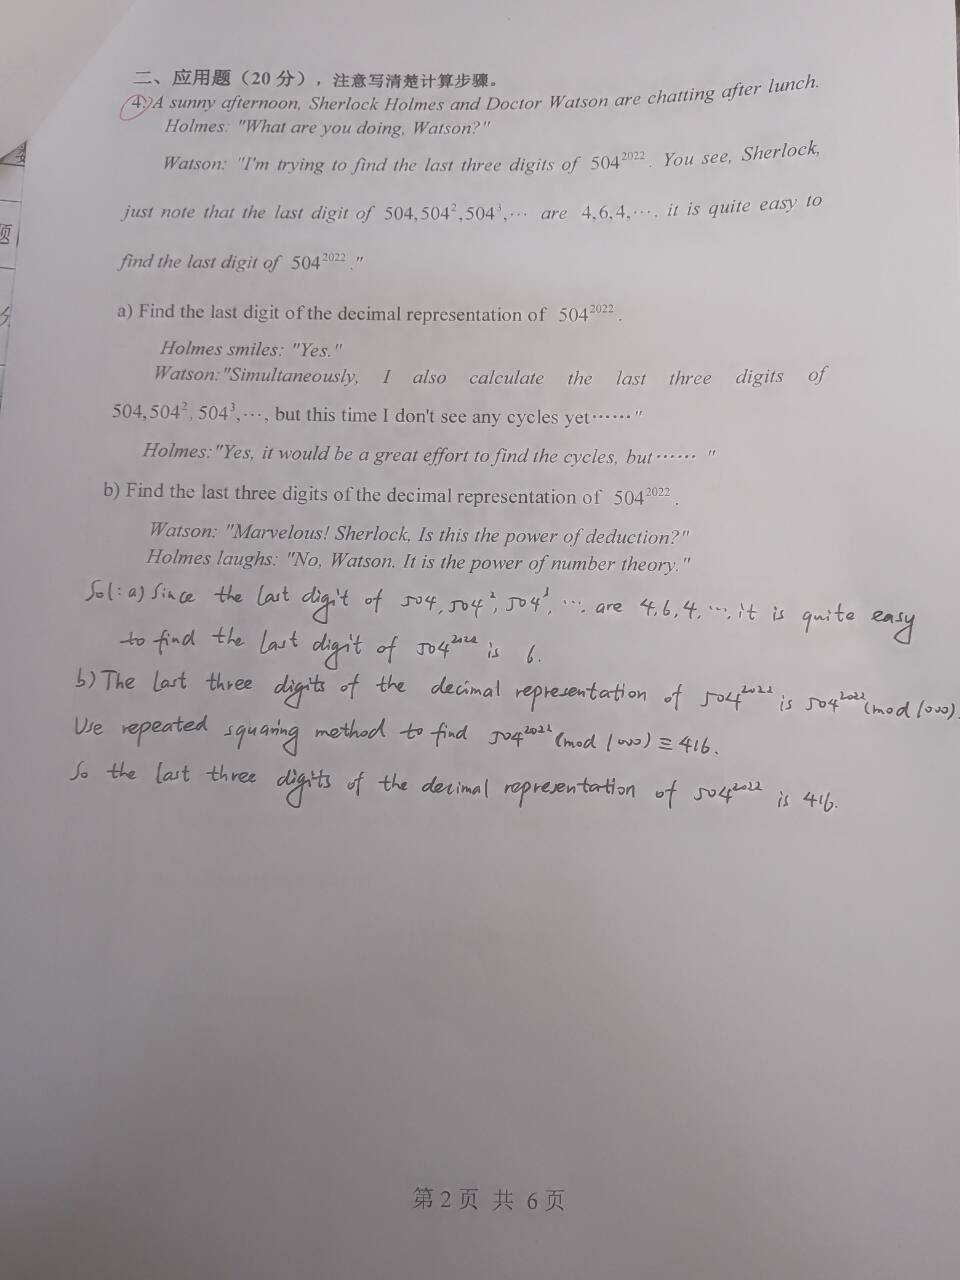 二、应用题（20 分），注意写清楚计算步骤。
4. A sunny afternoon, Sherlock Holmes and Doctor Watson are chatting after lunch.
Holmes: "What are you doing, Watson?"
Watson: "I'm trying to find the last three digits of 504^2022. You see, Sherlock,
just note that the last digit of 504, 504², 504³, ⋯ are 4,6,4,⋯, it is quite easy to
find the last digit of 504^2022."
a) Find the last digit of the decimal representation of 504^2022.
Holmes smiles: "Yes."
Watson: "Simultaneously, I also calculate the last three digits of
504, 504², 504³, ⋯, but this time I don't see any cycles yet⋯⋯"
Holmes: "Yes, it would be a great effort to find the cycles, but⋯⋯ "
b) Find the last three digits of the decimal representation of 504^2022.
Watson: "Marvelous! Sherlock, Is this the power of deduction?"
Holmes laughs: "No, Watson. It is the power of number theory."
Sol: a) Since the last digit of 504, 504², 504³, ⋯. are 4,6,4, ⋯, it is quite easy
to find the last digit of 504^2022 is 6.
b) The last three digits of the decimal representation of 504^2022 is 504^2022 (mod 1000).
Use repeated squaring method to find 504^2022 (mod 1000) ≡ 416.
So the last three digits of the decimal representation of 504^2022 is 416.
题
第 2 页 共 6 页